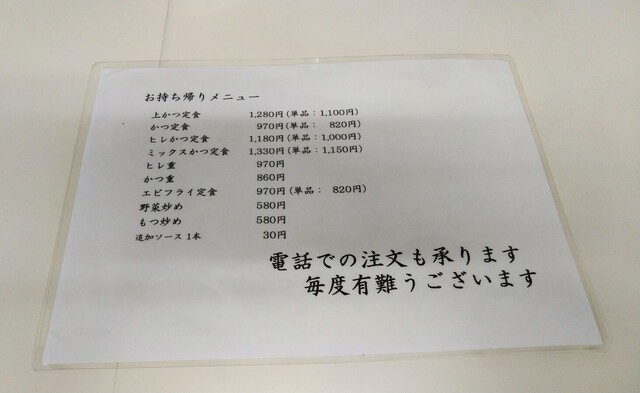 お持ち帰りメニュー
上かつ定食 1,280円(単品：1,100円)
かつ定食 970円(単品： 820円)
ヒレかつ定食 1,180円(単品：1,000円)
ミックスかつ定食 1,330円(単品：1,150円)
ヒレ重 970円
かつ重 860円
エビフライ定食 970円(単品： 820円)
野菜炒め 580円
もつ炒め 580円
追加ソース1本 30円
電話での注文も承ります
毎度有難うございます